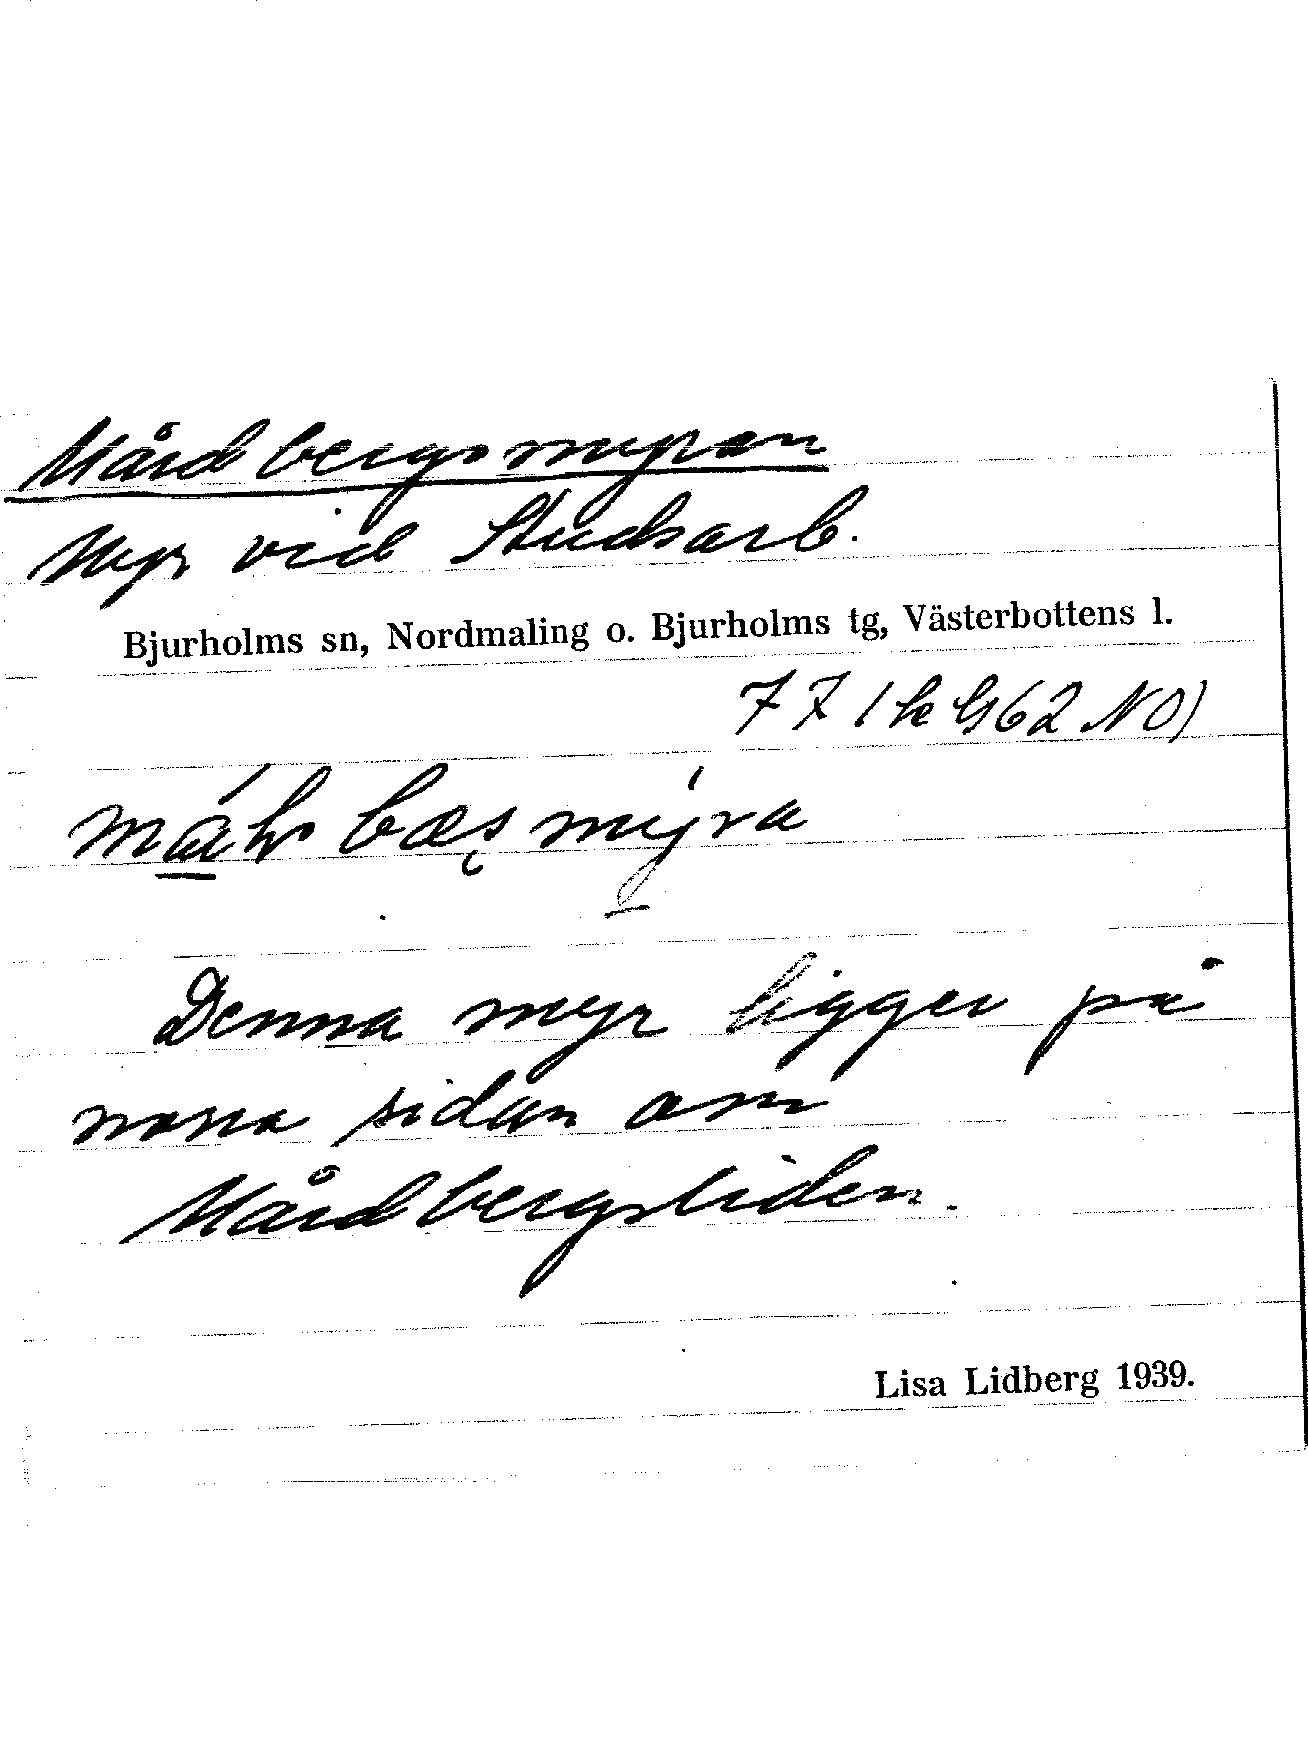 Mårdbergsmyran
Myr vid Studsarb.
Bjurholms sn, Nordmaling o. Bjurholms tg, Västerbottens l.
myra
Denna myr ligger på
norra sidan om
Mårdbergsliden.
Lisa Lidberg 1939.